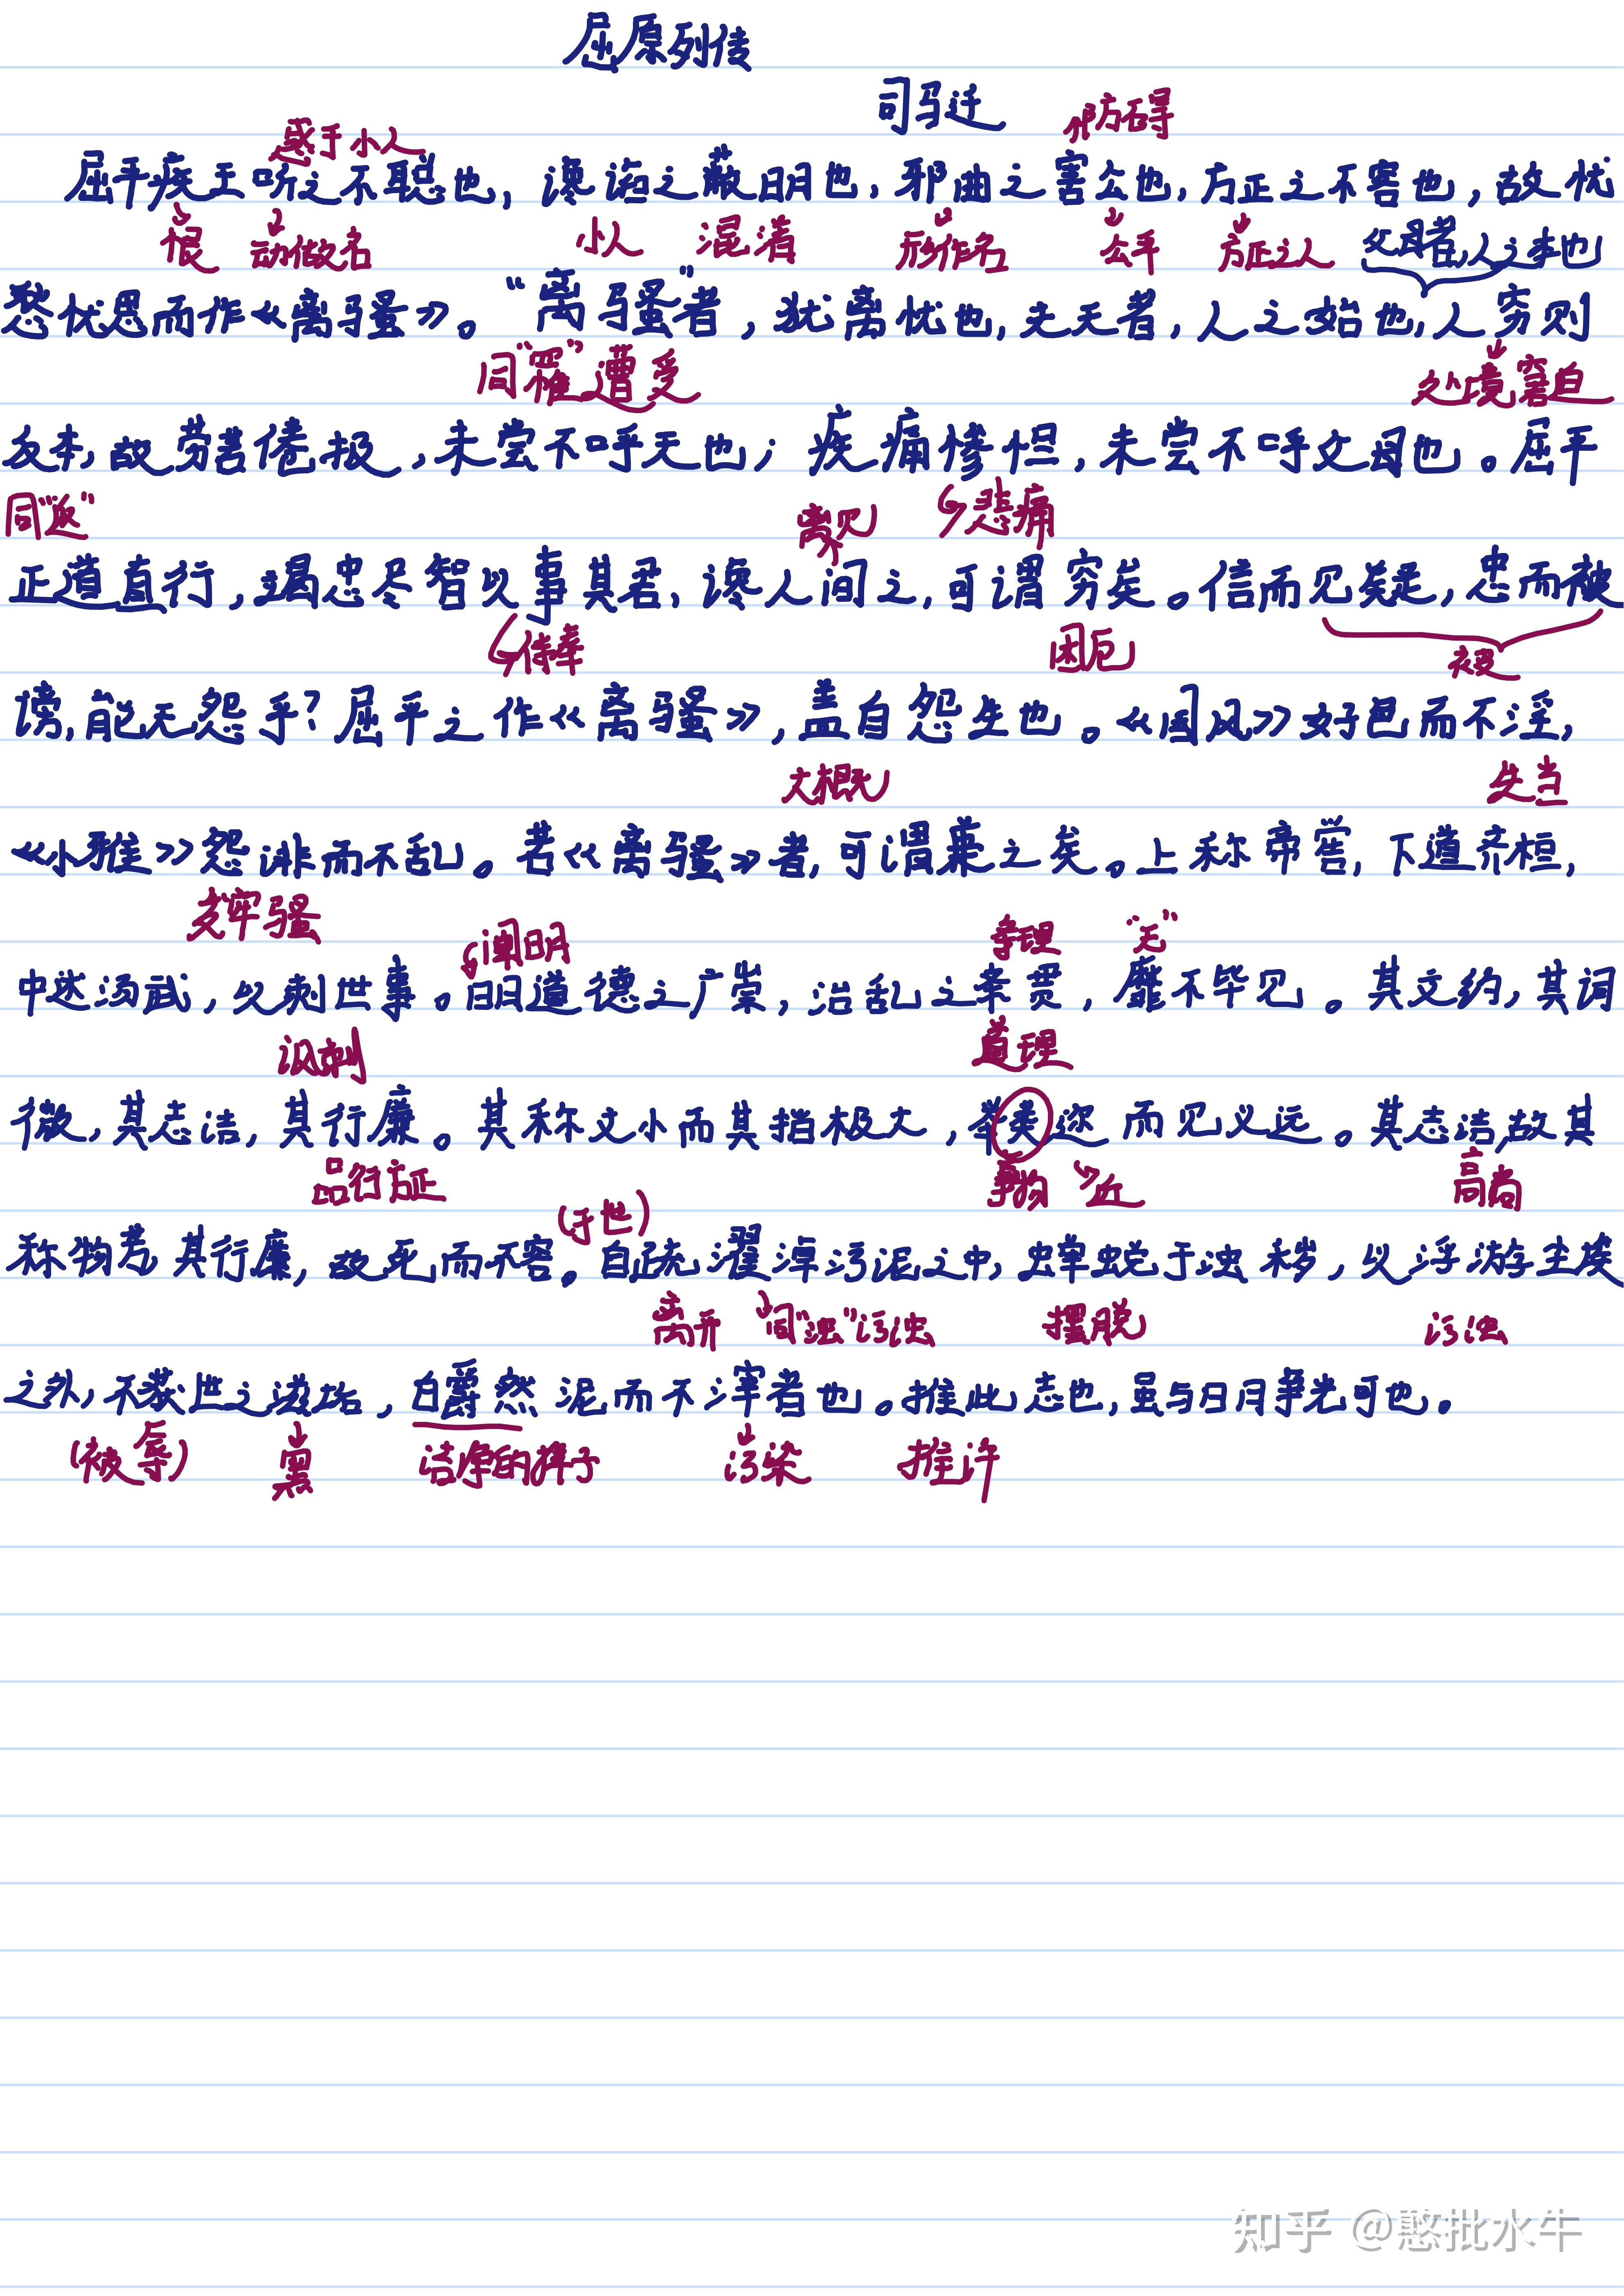 屈原列传
司马迁 妨碍
惑于小人
屈平疾王听之不聪也，谗谄之蔽明也，邪曲之害公也，方正之不容也，故忧
恨 动做名 小人 混淆 形作名 公平 方正之人 父母者，人之本也
愁忧思而作《离骚》。“离骚”者，犹离忧也，夫天者，人之始也，人穷则
同“罹”遭受 处境窘迫
反本，故劳苦倦极，未尝不呼天也；疾痛惨怛，未尝不呼父母也。屈平
同“返” 离见 悲痛
正道直行，竭忠尽智以事其君、谗人间之，可谓穷矣。信而见疑，忠而被
侍奉 困厄 被
谤，能无怨乎？屈平之作《离骚》，盖自怨生也。《国风》好色而不淫，
大概 失当
《小雅》怨诽而不乱。若《离骚》者，可谓兼之矣。上称帝喾，下道齐桓，
发牢骚 阐明 条理 “无”
中述汤武，以刺世事。明道德之广崇，治乱之条贯，靡不毕见。其文约，其词
讽刺 道理
微，其志洁，其行廉。其称文小而其指极大，举类迩而见义远。其志洁，故其
品行方正 事物 近 高尚
（于世）
称物芳，其行廉，故死而不容。自疏濯淖污泥之中，蝉蜕于浊秽，以浮游尘埃
离开 同“浊”污浊 摆脱 污浊
之外，不获世之滋垢，皭然泥而不滓者也。推此志也，虽与日月争光可也。
（被辱） 黑 洁净的样子 污染 推许
知乎 @憨批水牛